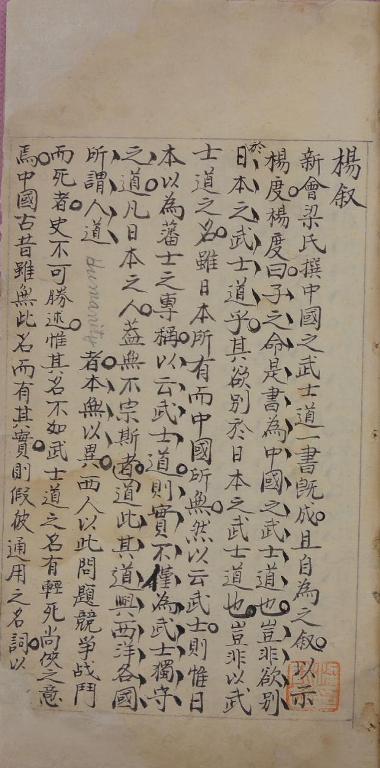 楊叙
新會梁氏撰中國之武士道一書既成。且自為之叙。以示
楊度。楊度曰。子之命是書為中國之武士道也。豈非欲别
於日本之武士道乎。其欲别於日本之武士道也。豈非以武
士道之名。雖日本所有而中國所無。然以云武士。則惟日
本以為藩士之專稱。以云武士道。則實不僅為武士獨守
之道。凡日本之人。蓋無不宗斯者。道此其道與西洋各國
所謂人道Humanity者本無以異。西人以此問題競爭战鬥
而死者。史不可勝述。惟其名不如武士道之名有輕死尚俠之意
焉。中國古昔雖無此名而有其實。則假彼通用之名詞。以